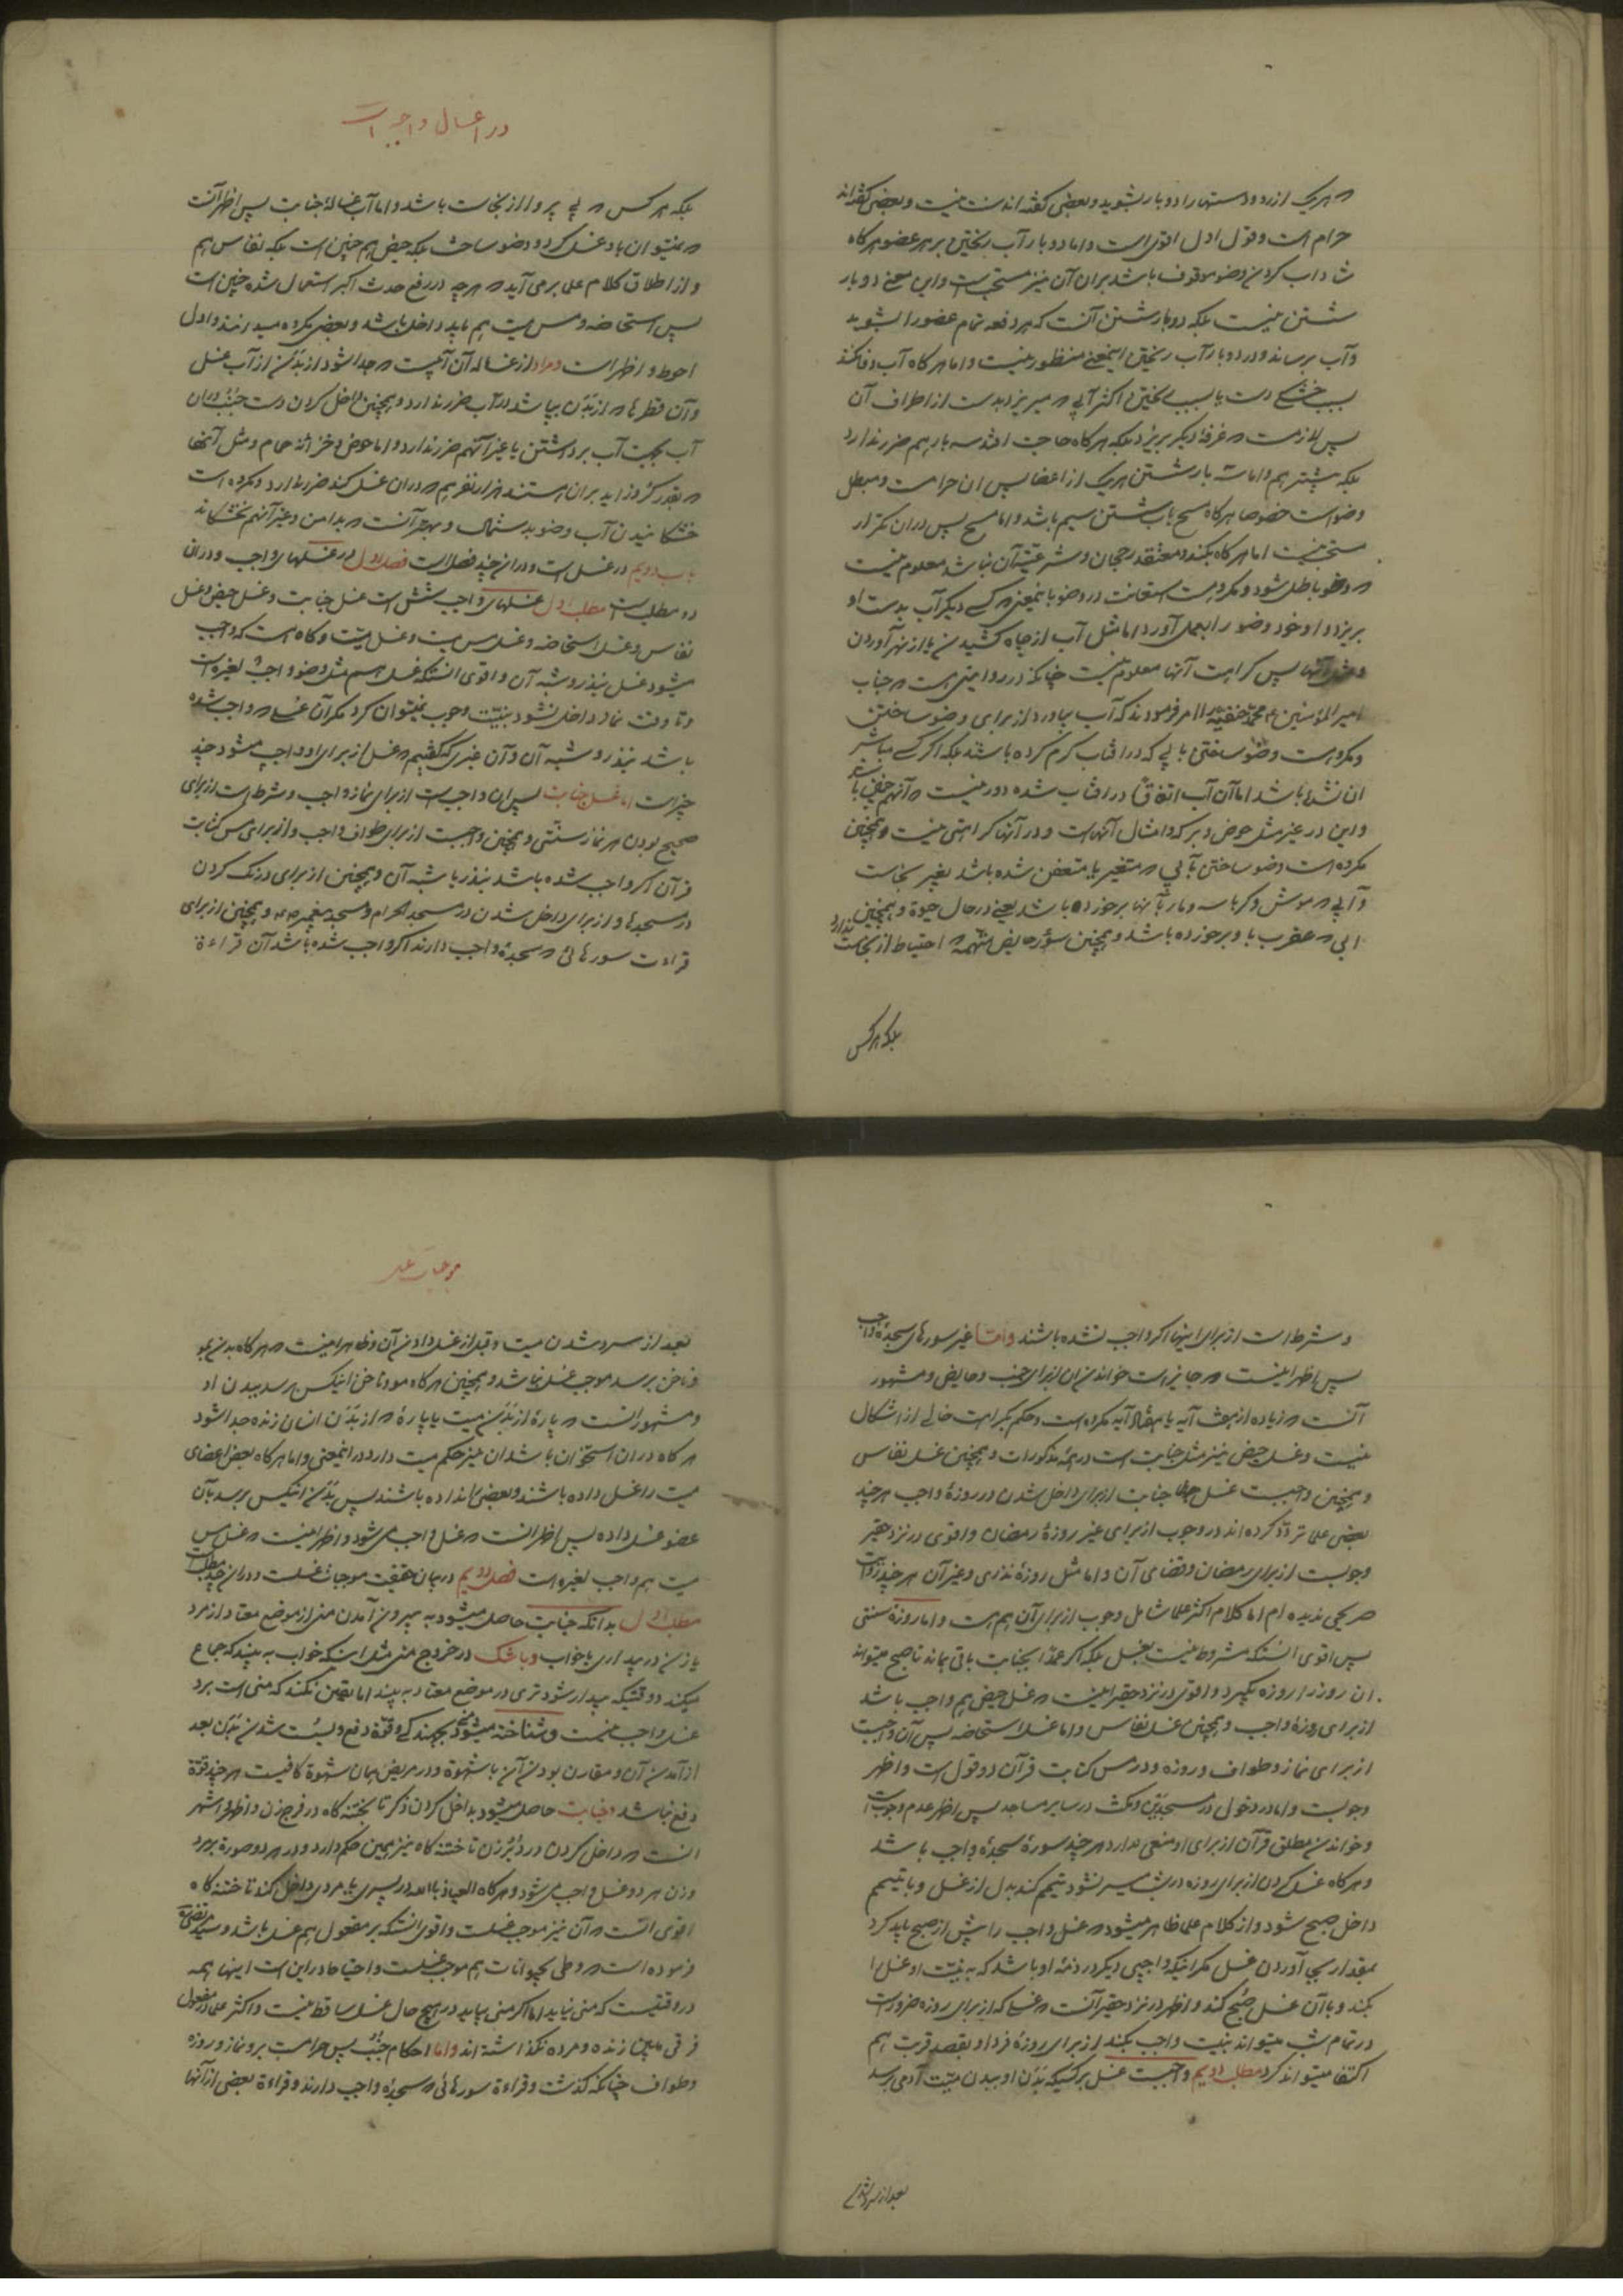 هر یک از رو و دستها را دو بار بشوید و بعضی گفته اند سنت نیست و بعضی گفته اند
حرام است و قول اول اقوی است و اما دو بار آب ریختن بر هر عضو هر گاه
شاداب کردن وضو موقوف باشد بر آن آن نیز مستحب است و این معنی دو بار
شستن نیست بلکه دو بار شستن آنست که هر دفعه تمام عضو را بشوید
و آب برساند و در دو بار آب ریختن اینمعنی منظور نیست و اما هر گاه آب وفا نکند
بسبب خشکی دست یا بسبب ریختن اکثر آبی که میریزد بدست از اطراف آن
پس لازمست که غرفهٔ دیگر بریزد بلکه هر گاه حاجت افتد سه بار هم ضرر ندارد
بلکه بیشتر هم و اما سه بار شستن هر یک از اعضا پس آن حرامست و مبطل
وضو است خصوصا هر گاه مسح باب شستن سیم باشد و اما مسح پس در آن تکرار
مستحب نیست اما هر گاه بکند و معتقد رجحان و شرعیت آن نباشد معلوم نیست
که وضو باطل شود و مکروهست استعانت در وضو باینمعنی که کسی دیگر آب بدست او
بریزد و او خود وضو را بعمل آورد اما مثل آب از چاه کشیدن یا از نهر آوردن
و مثل آنها پس کراهت آنها معلوم نیست چنانکه در روایتی هست که جناب
امیر المؤمنین ع محمد حنفیه را امر فرمودند که آب بیاورد از برای وضو ساختن
و مکروهست وضو ساختن بابی که در آفتاب گرم کرده باشند بلکه اگر کسی مباشر
آن نشده باشد اما آن آب اتفاقاً در آفتاب شده دور نیست که آنهم چنین باشد
و این در غیر مثل حوض و برکه و امثال آنهاست و در آنها کراهتی نیست و همچنین
مکروه است وضو ساختن بآبی که متغیر یا متعفن شده باشد بغیر نجاست
و آبی که موش و کرباسه و مار بآنها برخورده باشد یعنی در حال حیوة و همچنین
آبی که عقرب باو برخورده باشد و همچنین سؤر حایض متهمه که احتیاط از نجاست ندارد
بلکه هر کس
در اغسال واجبه است
بلکه هر کس که بی پروا از نجاست باشد و اما آب غسالهٔ جنابت پس اظهر آنست
که نمیتوان باو غسل کرد و وضو ساخت بلکه حیض هم چنین است بلکه نفاس هم
و از اطلاق کلام علما بر می آید که هر چه در رفع حدث اکبر استعمال شده چنین است
پس استحاضه و مس میت هم باید داخل باشد و بعضی مکروه میدانند و اول
احوط و اظهر است و مراد از غساله آن آبیست که جدا شود از بدن از آب غسل
و آن قطرها که از بدن بپاشد در آب ضرر ندارد و همچنین داخل کردن دست جنب در آن
آب بجهت آب برداشتن یا غیر آنهم ضرر ندارد و اما حوض و خزانهٔ حمام و مثل آنها
که بقدر کر و زاید بر آن هستند هزار نفر هم که در آن غسل کنند ضرر ندارد و مکروه است
خشکانیدن آب وضو بدستمال و بهتر آنست که بدامن و غیر آنهم نخشکاند
باب دویم در غسل است و در آن چند فصل است فصل اول در غسلهای واجب و در آن
دو مطلب است مطلب اول غسلهای واجب شش است غسل جنابت و غسل حیض و غسل
نفاس و غسل استحاضه و غسل مس میت و غسل میت و گاه هست که واجب
میشود غسل بنذر و شبه آن و اقوی آنستکه غسل هم مثل وضو واجب لغیره است
و تا وقت نماز داخل نشود بنیت وجوب نمیتوان کرد مگر آن غسلی که واجب شده
باشد بنذر و شبه آن و آن غیری که گفتیم که غسل از برای او واجب میشود چند
چیز است اما غسل جنابت پس آن واجب است از برای نماز واجب و شرط است از برای
صحیح بودن هر نماز سنتی و همچنین واجبست از برای طواف واجب و از برای مس کتابت
قرآن اگر واجب شده باشد بنذر یا شبه آن و همچنین از برای درنگ کردن
در مسجدها و از برای داخل شدن در مسجد الحرام و مسجد پیغمبر ص و همچنین از برای
قرائت سورهائی که سجدهٔ واجب دارند اگر واجب شده باشد آن قراءة
و شرط است از برای اینها اگر واجب نشده باشند و اما غیر سورهای سجدهٔ واجب
پس اظهر اینست که جایز است خواندن آن از برای جنب و حایض و مشهور
آنست که زیاده از هفت آیه یا هفتاد آیه مکروه است و حکم بکراهت خالی از اشکال
نیست و غسل حیض نیز مثل جنابت است در همهٔ مذکورات و همچنین غسل نفاس
و همچنین واجبست غسل جنابت از برای داخل شدن در روزهٔ واجب هر چند
بعضی علما تردد کرده اند در وجوب از برای غیر روزهٔ رمضان و اقوی در نزد حقیر
وجوبست از برای رمضان و قضای آن و اما مثل روزهٔ نذری و غیر آن هر چند روایت
صریحی ندیده ام اما کلام اکثر علما شامل وجوب از برای آن هم هست و اما روزهٔ سنتی
پس اقوی آنستکه مشروط نیست بغسل بلکه اگر عمداً بجنابت باقی بماند تا صبح میتواند
آن روز را روزه بگیرد و اقوی در نزد حقیر اینست که غسل حیض هم واجب باشد
از برای روزهٔ واجب و همچنین غسل نفاس و اما غسل استحاضه پس آن واجبست
از برای نماز و طواف و روزه و در مس کتابت قرآن دو قول است و اظهر
وجوبست و اما در دخول در مسجدین و مکث در سایر مساجد پس اظهر عدم وجوبست
و خواندن مطلق قرآن از برای او منعی ندارد هر چند سورهٔ سجدهٔ واجب باشد
و هر گاه غسل کردن از برای روزه در شب میسر نشود تیمم کند بدل از غسل و با تیمم
داخل صبح شود و از کلام علما ظاهر میشود که غسل واجب را پیش از صبح باید کرد
بمقدار بجای آوردن غسل مگر اینکه واجبی دیگر در ذمهٔ او باشد که به نیت او غسل را
بکند و با آن غسل صبح کند و اظهر در نزد حقیر آنست که غسلی که از برای روزه ضرور است
در تمام شب میتواند بنیت واجب بکند از برای روزهٔ فردا و بقصد قربت هم
اکتفا میتواند کرد مطلب دویم واجبست غسل بر کسیکه بدن او ببدن میت آدمی برسد
بعد از سرد شدن
موجبات غسل
بعد از سرد شدن میت و قبل از غسل دادن آن و ظاهر اینست که هر گاه بدن بمو
و ناخن برسد موجب غسل نباشد و همچنین هر گاه مو و ناخن اینکس برسد ببدن او
و مشهور آنست که پارهٔ از بدن میت یا پارهٔ که از بدن انسان زنده جدا شود
هر گاه در آن استخوان باشد آن نیز حکم میت دارد در اینمعنی و اما هر گاه بعض اعضای
میت را غسل داده باشند و بعضی را نداده باشند پس بدن اینکس برسد بآن
عضو غسل داده پس اظهر آنست که غسل واجب می شود و اظهر اینست که غسل مس
میت هم واجب لغیره است فصل دویم در بیان حقیقت موجبات غسلست و در آن چند مطلبست
مطلب اول بدانکه جنابت حاصل میشود به بیرون آمدن منی از موضع معتاد از مرد
یا زن در بیداری یا خواب و با شک در خروج منی مثل اینکه خواب به بیند که جماع
میکند و وقتیکه بیدار شود تری در موضع معتاد به بیند اما یقین نکند که منی است بر او
غسل واجب نیست و شناخته میشود منی بجهندگی و قوة دفع و سست شدن بدن بعد
از آمدن آن و مقارن بودن آن با شهوة و در مریض همان شهوة کافیست هر چند قوة
دفع نباشد و جنابت حاصل میشود بداخل کردن ذکر تا بختنه گاه در فرج زن و اظهر و اشهر
آنست که داخل کردن در دبر زن تا ختنه گاه نیز همین حکم دارد و در هر دو صورة بر مرد
و زن هر دو غسل واجب می شود و هر گاه العیاذ بالله در پسری یا مردی داخل کند تا ختنه گاه
اقوی آنست که آن نیز موجب غسلست و اقوی آنستکه بر مفعول هم غسل باشد و سید مرتضی
فرموده است که وطی بحیوانات هم موجب غسلست و احتیاط در این است اینها همه
در وقتیست که منی نیاید اما اگر منی بیاید در هیچ حال غسل ساقط نیست و اکثر علما در مفعول
فرقی ما بین زنده و مرده نگذاشته اند و اما احکام جنب پس حرامست بر او نماز و روزه
و طواف چنانکه گذشت و قراءة سورهائی که سجدهٔ واجب دارند و قراءة بعضی از آنها